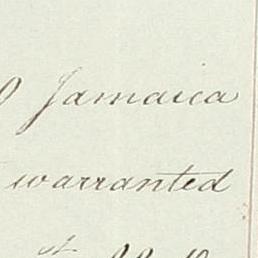 Jamaica
warranted